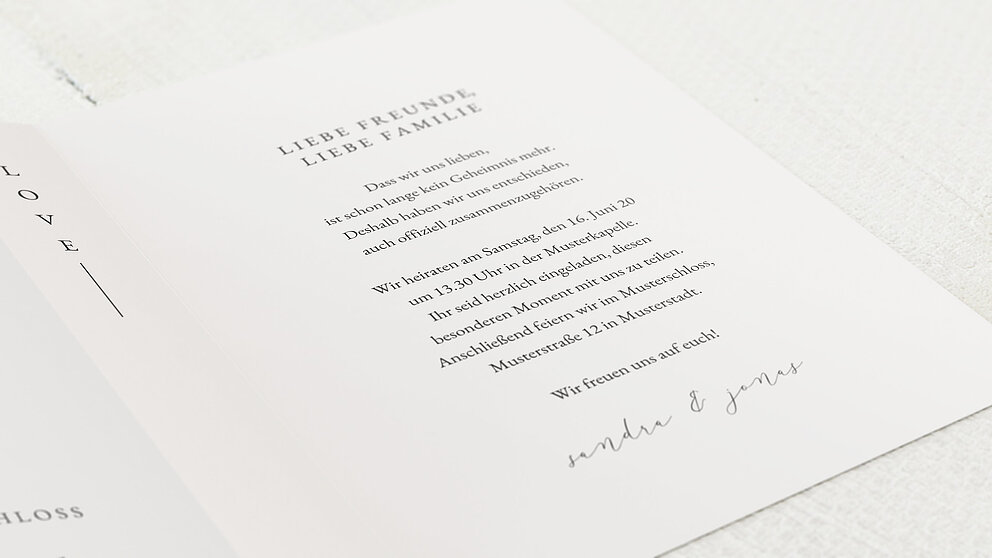 L
O
V
E
HLOSS
LIEBE FREUNDE,
LIEBE FAMILIE
Dass wir uns lieben,
ist schon lange kein Geheimnis mehr.
Deshalb haben wir uns entschieden,
auch offiziell zusammenzugehören.
Wir heiraten am Samstag, den 16. Juni 20
um 13.30 Uhr in der Musterkapelle.
Ihr seid herzlich eingeladen, diesen
besonderen Moment mit uns zu teilen.
Anschließend feiern wir im Musterschloss,
Musterstraße 12 in Musterstadt.
Wir freuen uns auf euch!
sandra & jonas